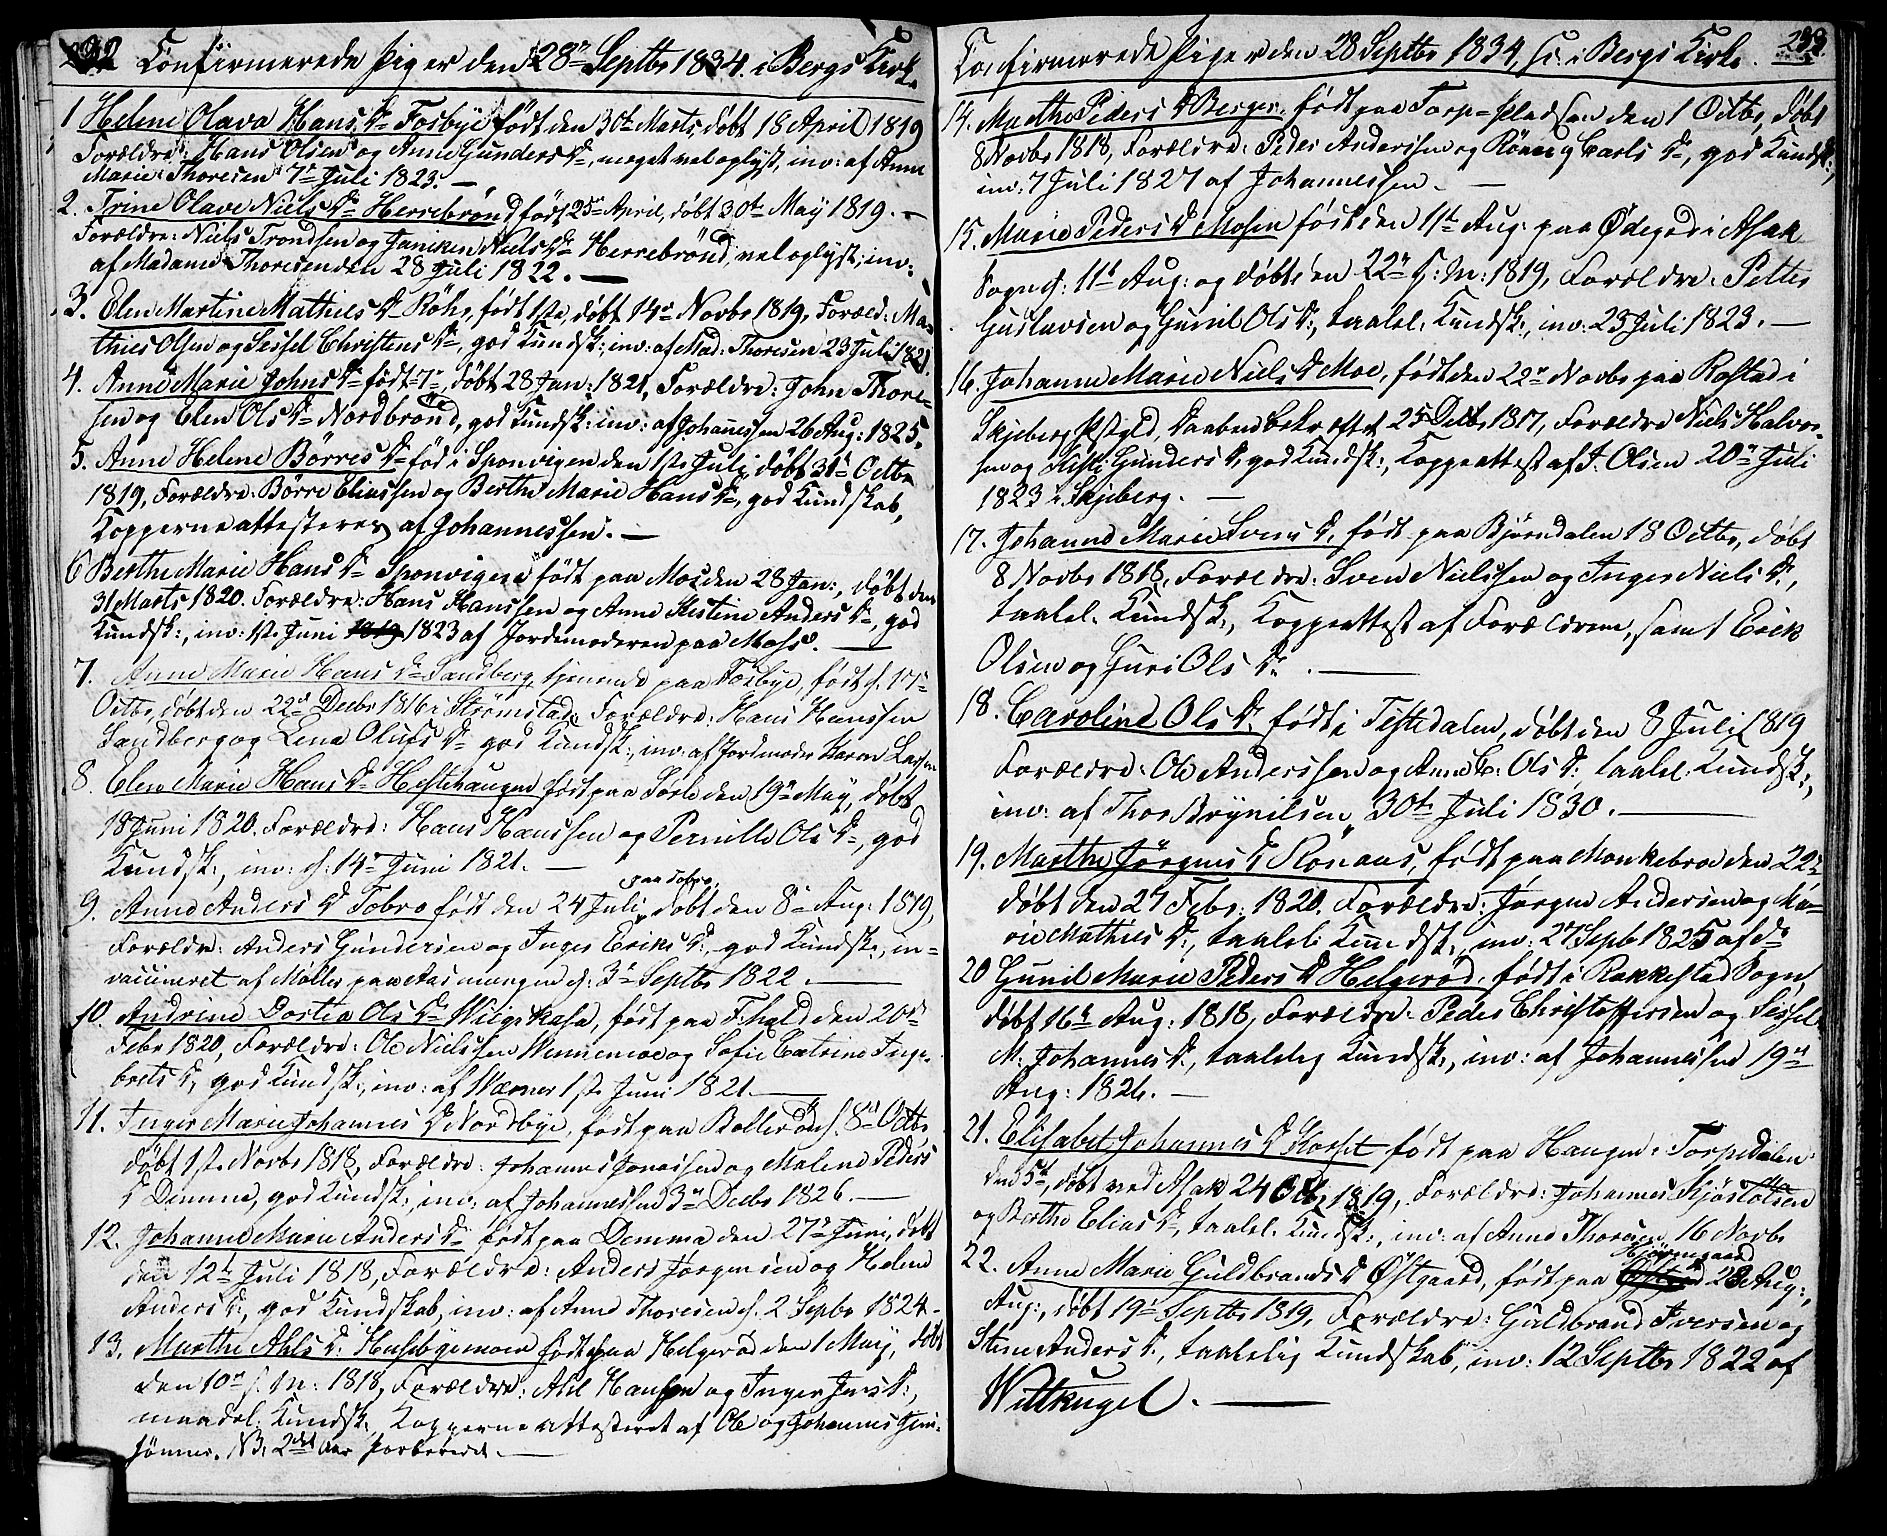 292 Confirmerede Piger den 28de Septbr 1834 i Bergs Kirke
1 Helene Olava Hans D. Fosbye født den 30te Marts, døbt 18 April 1819
Forældre: Hans Olsen og Anne Gunders D., meget vel oplyst, inv: af Anne
Marie Thoresen 7de Juli 1823. —
2. Trine Olave Niels D. Herrebrønd født 25de April, døbt 30te May 1819. —
Forældre: Niels Trondsen og Janiken Niels D. Herrebrönd, vel oplyst, inv:
af Madame Thoresen den 28 Juli 1822. —
3. Elen Martine Mathies D. Röhr, født 1ste, døbt 14de Novbr 1819, Foræld: Ma-
thies Olsen og Sissel Christens D., god Kundsk: inv: af Mad: Thoresen 23 Juli 1821.
4. Anne Marie Johns D. født 7de, døbt 28 Jan: 1821, Forældre: John Thore-
sen og Elen Ols D. Nordbrönd, god Kundsk: inv: af Johannessen 26 Aug: 1825.
5. Anne Helene Börres D. fød i Sponvigen den 1ste Juli, døbt 31te Octbr
1819, Forældre: Börre Eliassen og Berthe Marie Hans D., god Kundskab,
Kopperne attesterer af Johannessen. —
6 Berthe Marie Hans D. Sponvigen født paa Mos den 28 Jan:, døbt den
31 Marts 1820. Forældre: Hans Hanssen og Anne Kirstine Anders D., god
Kundsk:, inv: 1ste Juni 1823 af Jordemoderen paa Moss. —
7. Anne Marie Hans D. Sandberg, tjenende paa Fosbye, født d. 17de
Octbr, døbt den 22de Decbr 1816 i Strømstad, Forældre: Hans Hanssen
Sandberg og Lena Olufs D. god Kundsk:, inv: af Jordmoder Karen Larsen
8. Elen Marie Hans D. Hestehaugen født paa Sørli den 19de May, døbt
18 Juni 1820. Forældre: Hans Hanssen og Pernille Ols D., god
Kundsk:, inv: d: 14de Juni 1821. —
9. Anne Anders D. Tobro født den 24 Juli paa Tobro, døbt den 8de Aug: 1819,
Forældre: Anders Gundersen og Inger Eriks D., god Kundsk:, in-
vaccineret af Møller paa Aasmangen d: 3de Septbr 1822. —
10. Andrine Dortea Ols D. Wiigskasa, født paa Fhald den 20de
Febr 1820, Forældre: Ole Nielssen Wennemoe og Sofie Catrine Inge-
brets D., god Kundsk:, inv: af Wærner 1ste Juni 1821. —
11. Inger Marie Johannes D. Nordbye, født paa Bollerød d. 8de Octbr
døbt 1ste Novbr 1818, Forældre: Johannes Jonassen og Malene Peders
D. Demma, god Kundsk:, inv: af Johannessen 3de Decbr 1826. —
12. Johanne Marie Anders D. født paa Demma den 27de Juni, døbt
den 12te Juli 1818, Forældre: Anders Jørgensen og Helene
Anders D., god Kundskab, inv: af Anne Thoresen d. 2 Sepbr 1824. —
13. Marthe Ahls D. Husebyemoen født paa Helgerød den 1 May, døbt
den 10de s: M: 1818, Forældre: Ahl Hansen og Inger Jens D.,
maadel: Kundsk:, Kopperne attesteret af Ole og Johannes Hen-
hönnes. NB, 2det Aar forberedt. —
Confirmerede Piger den 28 Septbr 1834, i Bergs Kirke. 293
14. Marthe Peders D. Berger: født paa Torp-Pladsen den 1 Octbr, døbt
8 Novbr 1818, Forældre: Peder Anderssen og Rönnig Carls D., god Kundsk:,
inv: 7 Juli 1827 af Johannessen. —
15. Marie Peders D. Mosen født den 11te Aug: paa Ødegaard i Asak
Sogn d: 11te Aug: og døbt den 22de s: M: 1819, Forældre: Petter
Gustavsen og Gunil Ols D., taalel: Kundsk:, inv: 23 Juli 1823. —
16. Johanne Marie Niels D. Moe, født den 22de Novbr paa Rostad i
Skjeberg Pstgld, Daaben bekræftet 25 Decbr 1817, Forældre Niels Halvor-
sen og Kitty Gunders D., god Kundsk:, Koppeattest af J. Olsen 20de Juli
1823 i Skjeberg. —
17. Johanne Marie Svens D., født paa Bjørndalen 18 Octbr, døbt
8 Novbr 1818, Forældre: Sven Nielssen og Inger Niels D.,
taalel. Kundsk:, Koppeattest af Forældrene, samt Erick
Olsen og Guri Ols D. —
18. Caroline Ols D. født i Tistedalen, døbt den 8 Juli 1819
Forældre: Ole Anderssen og Anne C: Ols D: taalel: Kundsk:,
inv: af Thor Brynilsen 30te Juli 1830. —
19. Marthe Jörgens D. Rönaas, født paa Monkebroe den 22de
døbt den 27 Febr: 1820. Forældre: Jörgen Andersen og Ma-
rie Mathies D:, taalel: Kundsk:, inv: 27 Sepb 1825 af do
20 Gunil Marie Peders D Helgerød, født i Rakkestad Sogn,
døbt 16te Aug: 1818, Forældre: Peder Christoffersen og Sissel
M: Johannes D., taalelig Kundsk:, inv: af Johannessen 19de
Aug: 1826. —
21. Elisabet Johannes D Korset født paa Haugen i Torpedalen
den 5te, døbt ved Asak 24 Octbr 1819, Forældre: Johannes Kjøstolsen
og Berthe Elias D., taalel: Kundsk:, inv: af Anne Thoresen 16 Novbr
22. Anne Marie Guldbrands D Østgaard, født paa Hjørnegaard 28 Aug:,
Aug:, døbt 19de Septbr 1819, Forældre: Guldbrand Iversen og
Stine Anders D., taalelig Kundskab, inv: 12 Septbr 1822 af
Wittkugel. —